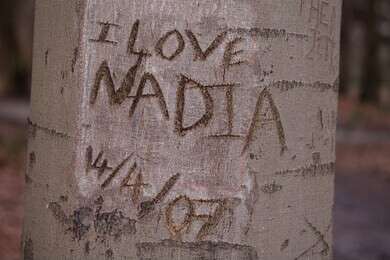 I LOVE
NADIA
4/4/
07